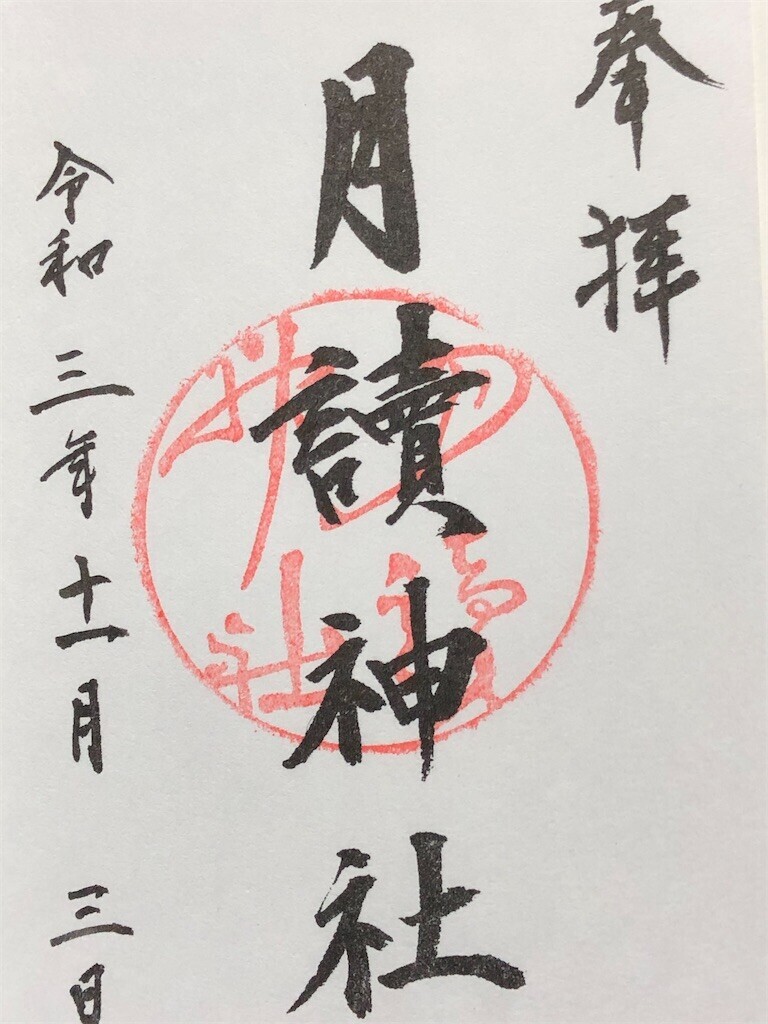 奉拝
月讀神社
令和三年十一月三日